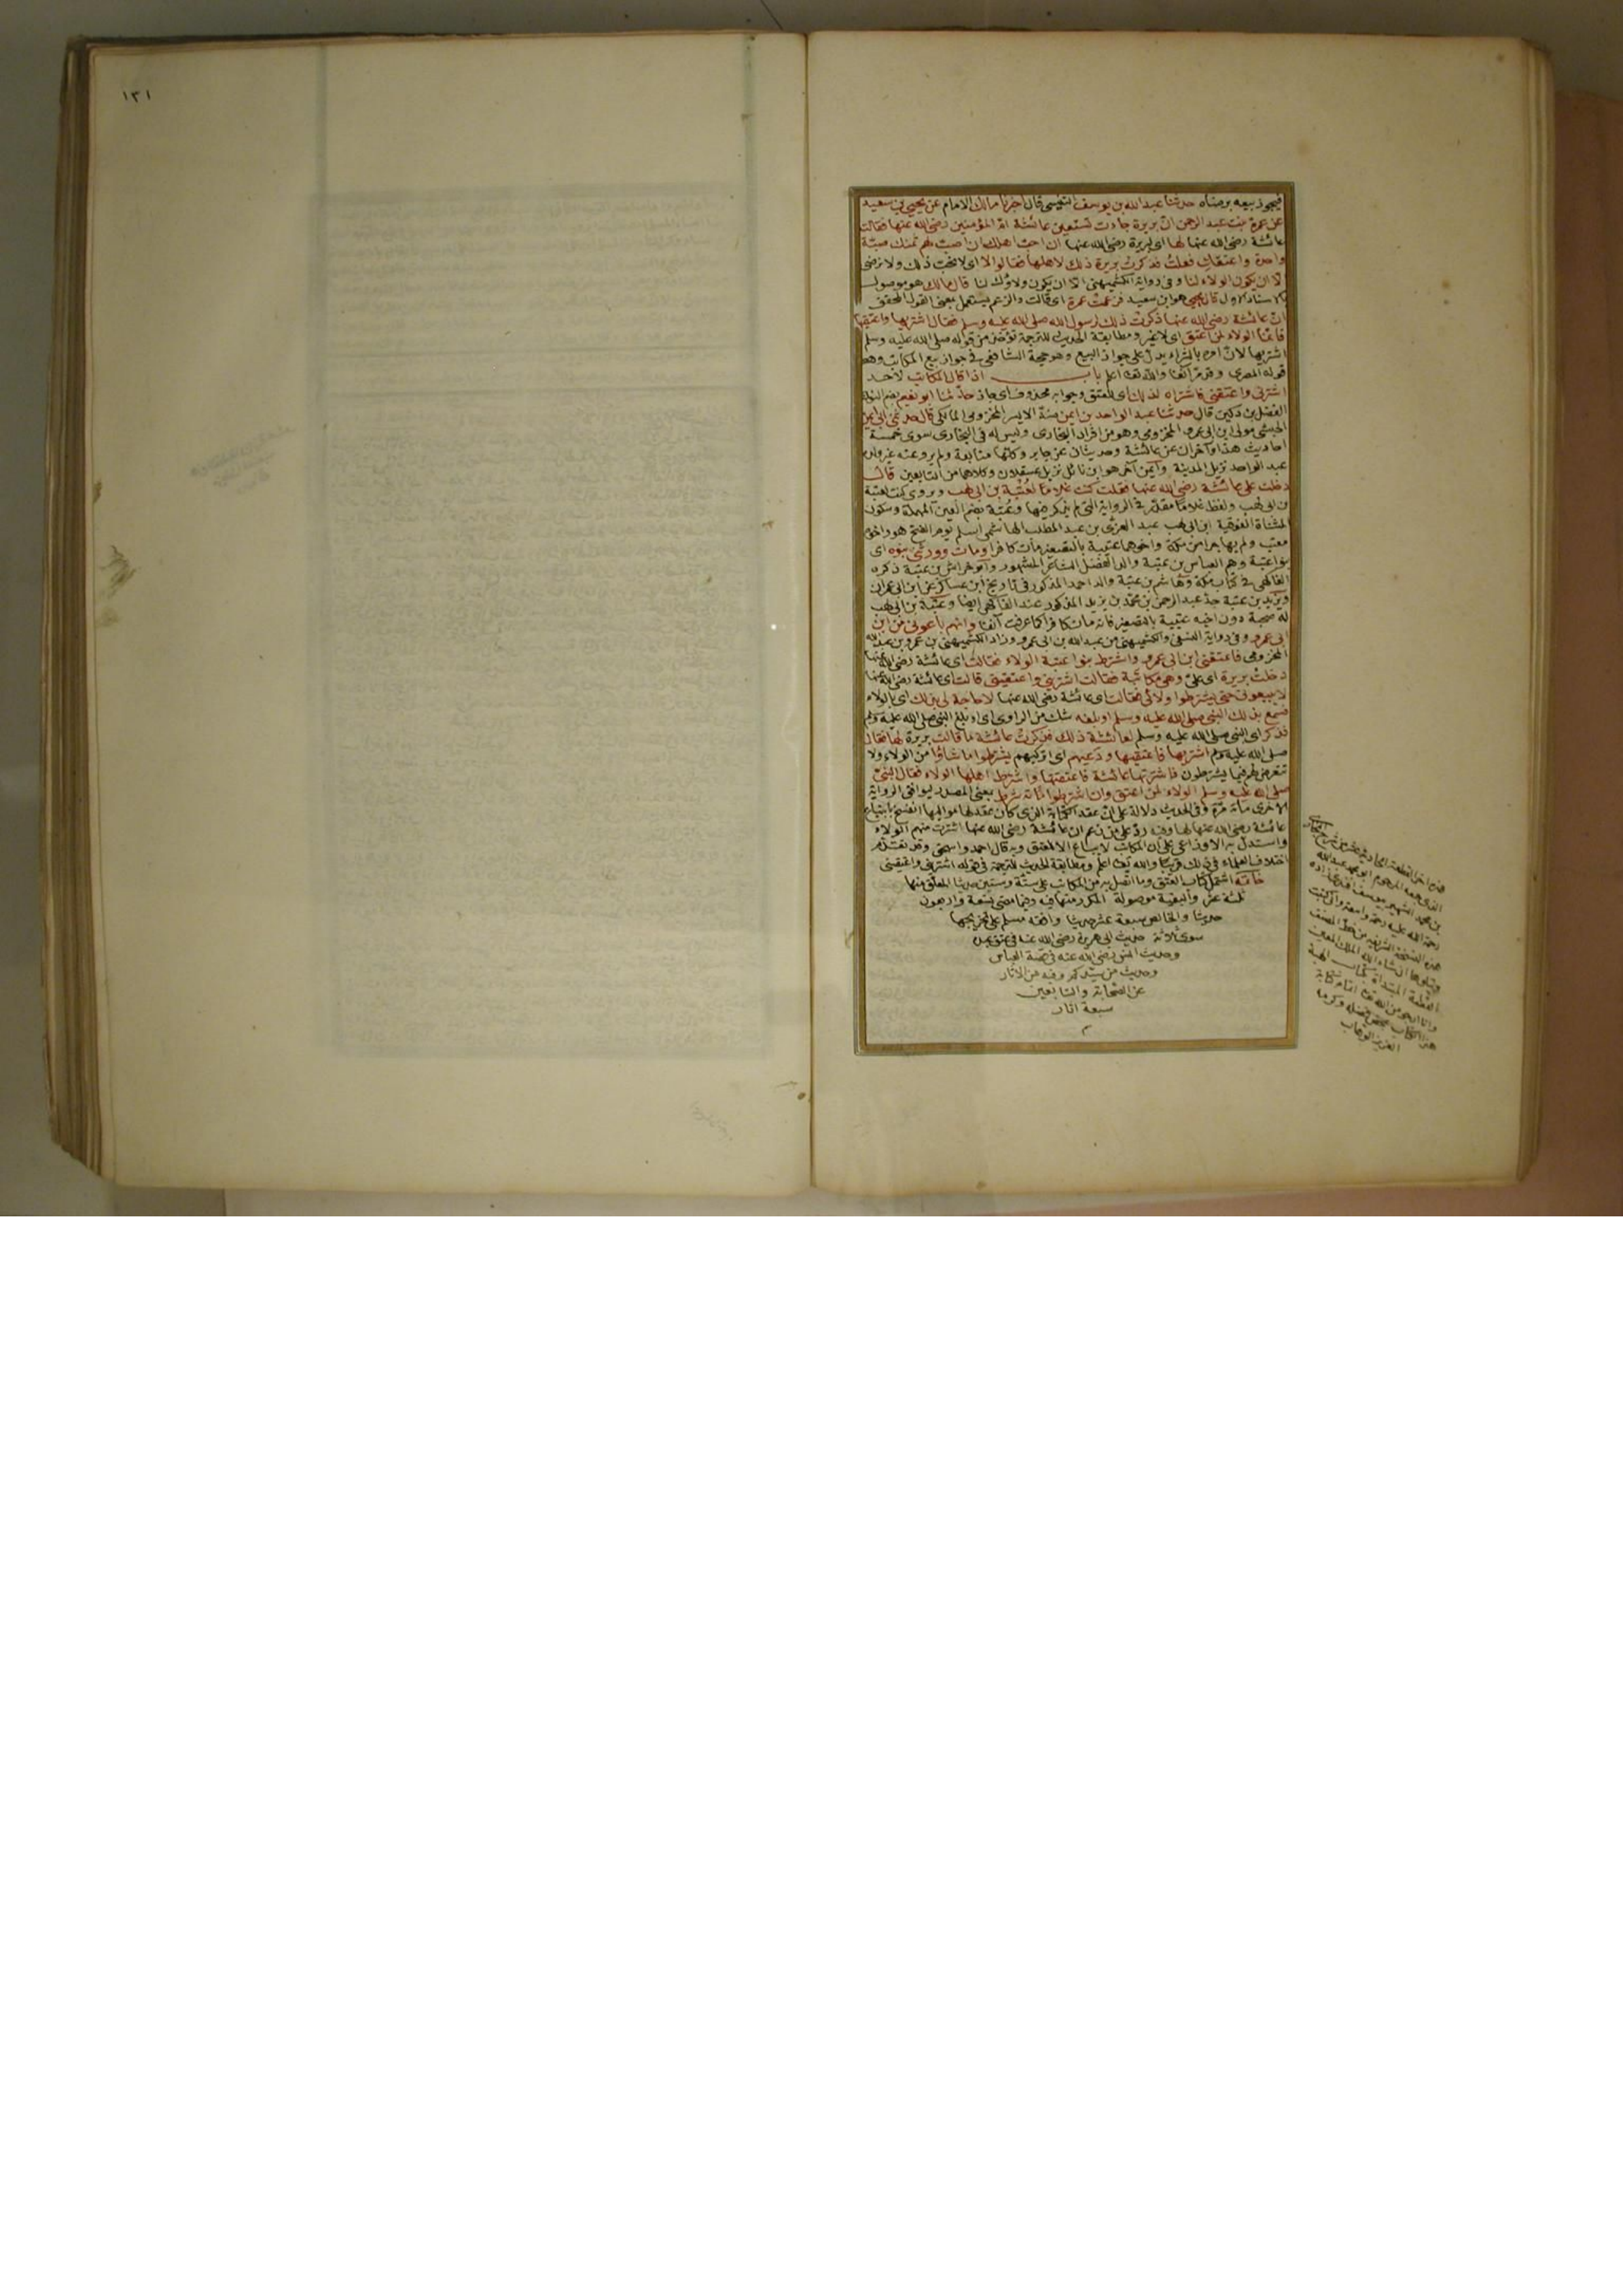 فيجوز بيعه برضاه حدثنا عبد الله بن يوسف التنيسي قال اخبرنا مالك الامام عن يحيى بن سعيد
عن عمرة بنت عبد الرحمن ان بريرة جاءت تستعين عائشة ام المؤمنين رضى الله عنها فقالت
عائشة رضى الله عنها لها اى لبريرة رضى الله عنها ان احب اهلك ان اصب لهم ثمنك صبة
واحدة واعتقك فعلت فذكرت بريرة ذلك لاهلها فقالوا لا اى لا نحب ذلك ولا نرضى
الا ان يكون الولاء لنا وفى رواية الكشميهنى الا ان يكون ولاؤك لنا قال مالك هو موصول
بالاسناد الاول قال يحيى هو ابن سعيد فزعمت عمرة اى قالت والزعم يستعمل بمعنى القول المحقق
ان عائشة رضى الله عنها ذكرت ذلك لرسول الله صلى الله عليه وسلم فقال اشتريها واعتقيها
فانما الولاء لمن اعتق اى لا غير ومطابقة الحديث للترجمة تؤخذ من قوله صلى الله عليه وسلم
اشتريها لان امره بالشراء يدل على جواز البيع وهو حجة الشافعى فى جواز بيع المكاتب وهو
قوله المصرى وقد مر آنفا والله تعالى اعلم باب اذا قال المكاتب لاحد
اشترنى واعتقنى فاشتراه لذلك اى للعتق وجوابه محذوف اى جاز حدثنا ابو نعيم بضم النون
الفضل بن دكين قال حدثنا عبد الواحد بن ايمن ضد الايسر المخزومى المكى قال حدثنى ابى ايمن
الحبشى مولى ابن ابى عمرو المخزومى وهو من افراد البخارى وليس له فى البخارى سوى خمسة
احاديث هذا وآخران عن عائشة وحديثان عن جابر وكلها متابعة ولم يرو عنه غير ولده
عبد الواحد نزيل المدينة وايمن آخر هو ابن نائل نزيل عسقلان وكلاهما من التابعين قال
دخلت على عائشة رضى الله عنها فقلت كنت غلاما لعتبة بن ابى لهب ويروى كنت لعتبة
بن ابى لهب ولفظ غلاما مقدر فى الرواية التى لم يذكر فيها وعتبة بضم العين المهملة وسكون
المثناة الفوقية ابن ابى لهب عبد العزى بن عبد المطلب الهاشمى اسلم يوم الفتح هو واخوه
معتب ولم يهاجرا من مكة واخوهما عتيبة بالتصغير مات كافرا ومات وورثنى بنوه اى
بنو عتبة وهم العباس بن عتبة والد الفضل الشاعر المشهور وابو خراش بن عتبة ذكره
الفاكهى فى كتاب مكة وهاشم بن عتبة والد احمد المذكور فى تاريخ ابن عساكر عن ابن ابى عمران
ويزيد بن عتبة جد عبد الرحمن بن محمد بن يزيد المذكور عند الفاكهى ايضا وعتبة بن ابى لهب
له صحبة دون اخيه عتيبة بالتصغير فانه مات كافرا كما عرفت آنفا وانهم باعونى من ابن
ابى عمرو وفى رواية النسفى والكشميهنى من عبد الله بن ابى عمرو وزاد الكشميهنى بن عمرو بن عبد الله
المخزومى فاعتقنى ابن ابى عمرو واشترط بنو عتبة الولاء فقالت اى عائشة رضى الله عنها
دخلت بريرة اى على وهى مكاتبة فقالت اشترينى واعتقينى قالت اى عائشة رضى الله عنها
لا يبيعونى حتى يشترطوا ولائى فقالت اى عائشة رضى الله عنها لا حاجة لى بذلك اى بالولاء
فسمع بذلك النبى صلى الله عليه وسلم او بلغه شك من الراوى اى او بلغ النبى صلى الله عليه وسلم
فذكر اى النبى صلى الله عليه وسلم لعائشة ذلك فذكرت عائشة ما قالت بريرة لها فقال
صلى الله عليه وسلم اشتريها فاعتقيها ودعيهم اى اتركيهم يشترطوا ما شاؤا من الولاء ولا
تتعرض لهم فيما يشترطون فاشترتها عائشة فاعتقتها واشترط اهلها الولاء فقال النبى
صلى الله عليه وسلم الولاء لمن اعتق وان اشترطوا مائة شرط بمعنى المصدر ليوافق الرواية
الاخرى مائة مرة وفى الحديث دلالة على ان عقد الكتابة الذى كان عقد لها مواليها انفسخ بابتياع
عائشة رضى الله عنها لها وفيه رد على من زعم ان عائشة رضى الله عنها اشترت منهم الولاء
واستدل به الاوزاعى على ان المكاتب لا يباع الا للعتق وبه قال احمد واسحق وقد تقدم
اختلاف العلماء فى ذلك قريبا والله تعالى اعلم ومطابقة الحديث للترجمة فى قوله اشترينى واعتقينى
خاتمة اشتمل كتاب العتق وما اتصل به من المكاتب على ستة وستين حديثا المعلق منها
ثلثة عشر والبقية موصولة المكرر منها فيه وفيما مضى تسعة واربعون
حديثا والخالص سبعة عشر حديثا وافقه مسلم على تخريجها
سوى ثلاثة حديث ابى هريرة رضى الله عنه فى عتق عبده
وحديث انس رضى الله عنه فى قصة العباس
وحديث من سيدكم وفيه من الاثار
عن الصحابة والتابعين
سبعة اثار
م
هذه اخر القطعة الحادية عشر من شرح البخارى
الذى جمعه المرحوم ابو محمد عبد الله
بن محمد الشهير بيوسف افندى زاده
رحمة الله عليه رحمة واسعة وانى كتبت
هذه النسخة الشريفة من خط المصنف
ويتلوها ان شاء الله الملك المعين
القطعة المبتدأة بكتاب الهبة
وانا ارجو من الله تعالى اتمام كتابة
هذا الكتاب بمحض فضله وكرمه
العزيز الوهاب
١٣١